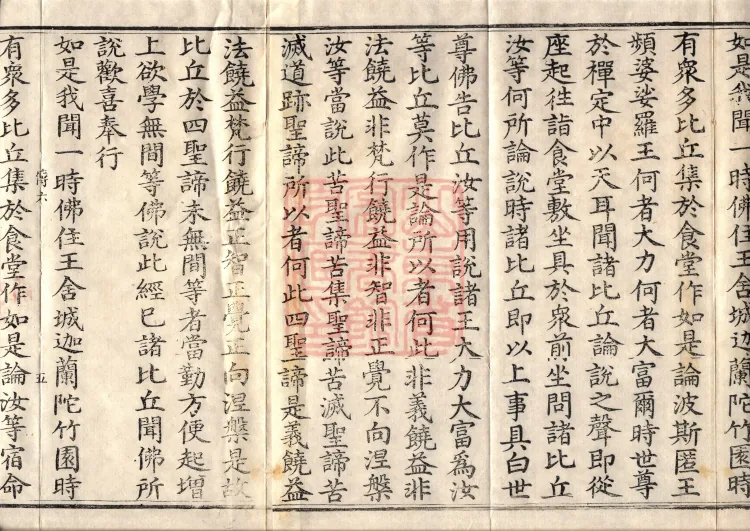 如是我聞一時佛住王舍城迦蘭陀竹園時
有衆多比丘集於食堂作如是論波斯匿王
頻婆娑羅王何者大力何者大富爾時世尊
於禪定中以天耳聞諸比丘論說之聲即從
座起往詣食堂敷坐具於衆前坐問諸比丘
汝等何所論說時諸比丘即以上事具白世
尊佛告比丘汝等用說諸王大力大富爲汝
等比丘莫作是論所以者何此非義饒益非
法饒益非梵行饒益非智非正覺不向涅槃
汝等當說此苦聖諦苦集聖諦苦滅聖諦苦
滅道跡聖諦所以者何此四聖諦是義饒益
法饒益梵行饒益正智正覺正向涅槃是故
比丘於四聖諦未無間等者當勤方便起增
上欲學無間等佛說此經已諸比丘聞佛所
說歡喜奉行
如是我聞一時佛住王舍城迦蘭陀竹園時
五
有衆多比丘集於食堂作如是論汝等宿命